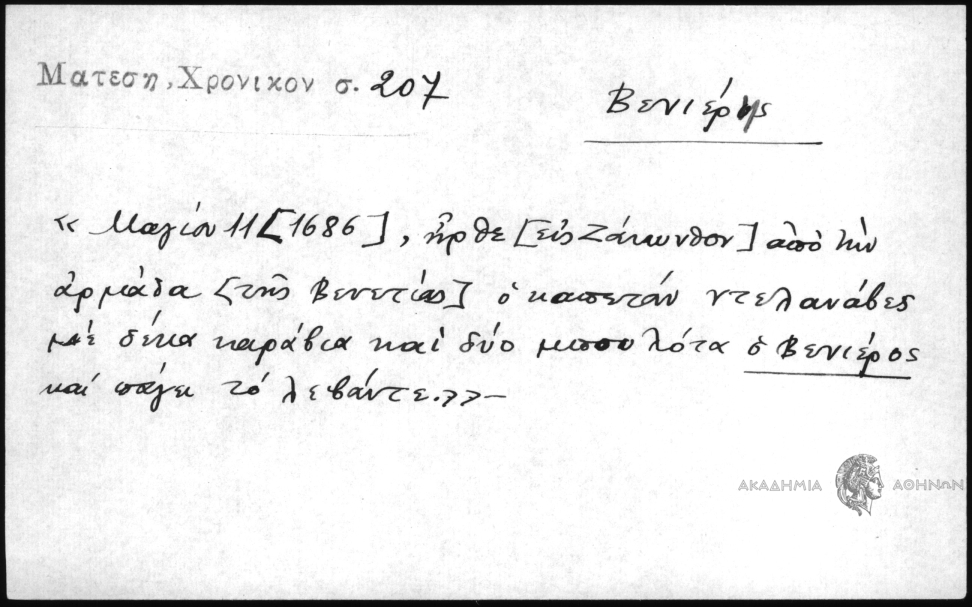 Ματεση, Χρονικον σ. 207
Βενιέρης
« Μαγίου 11 [1686], ἦρθε [εἰς Ζάκυνθον] ἀπὸ τὴν
ἀρμάδα [τῆς Βενετίας] ὁ καπετάν ντελανάβες
μὲ δέκα καράβια καὶ δύο μπουλότα ὁ Βενιέρος
καί πάγει τό λεβάντε.»—
ΑΚΑΔΗΜΙΑ ΑΘΗΝΩΝ